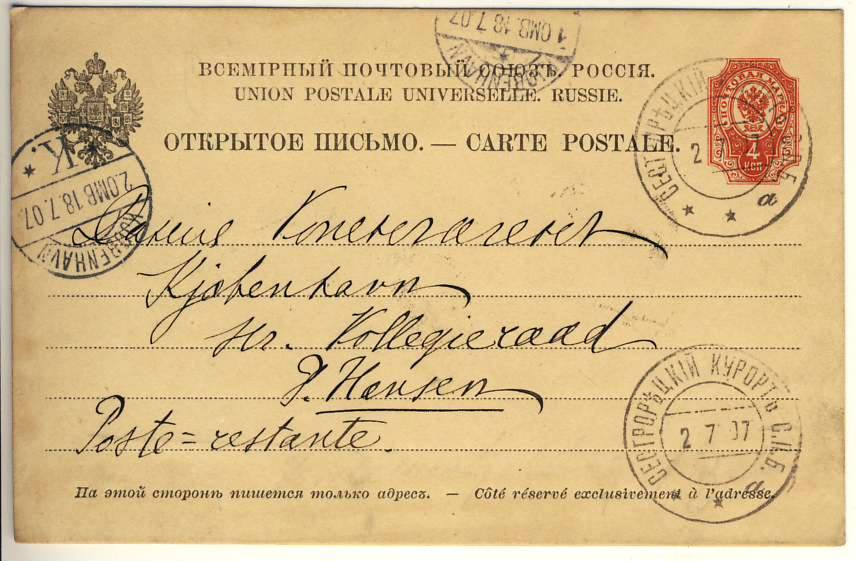 1.OMB. 18.7.07
KJØBENHAVN
ВСЕМІРНЫЙ ПОЧТОВЫЙ СОЮЗЪ. РОССІЯ.
UNION POSTALE UNIVERSELLE. RUSSIE.
ОТКРЫТОЕ ПИСЬМО. — CARTE POSTALE.
ПОЧТОВАЯ МАРКА
4
КОП
СЕСТРОРѢЦКІЙ С.П.Б.
2 7
а
K.
2.OMB. 18.7.07.
KJØBENHAVN
Kjøbenhavn
Hr. Kollegieraad
Hansen
Poste=restante.
СЕСТРОРѢЦКІЙ КУРОРТЪ С.П.Б.
2 7 07
а
На этой сторонѣ пишется только адресъ. — Côté réservé exclusivement à l'adresse.